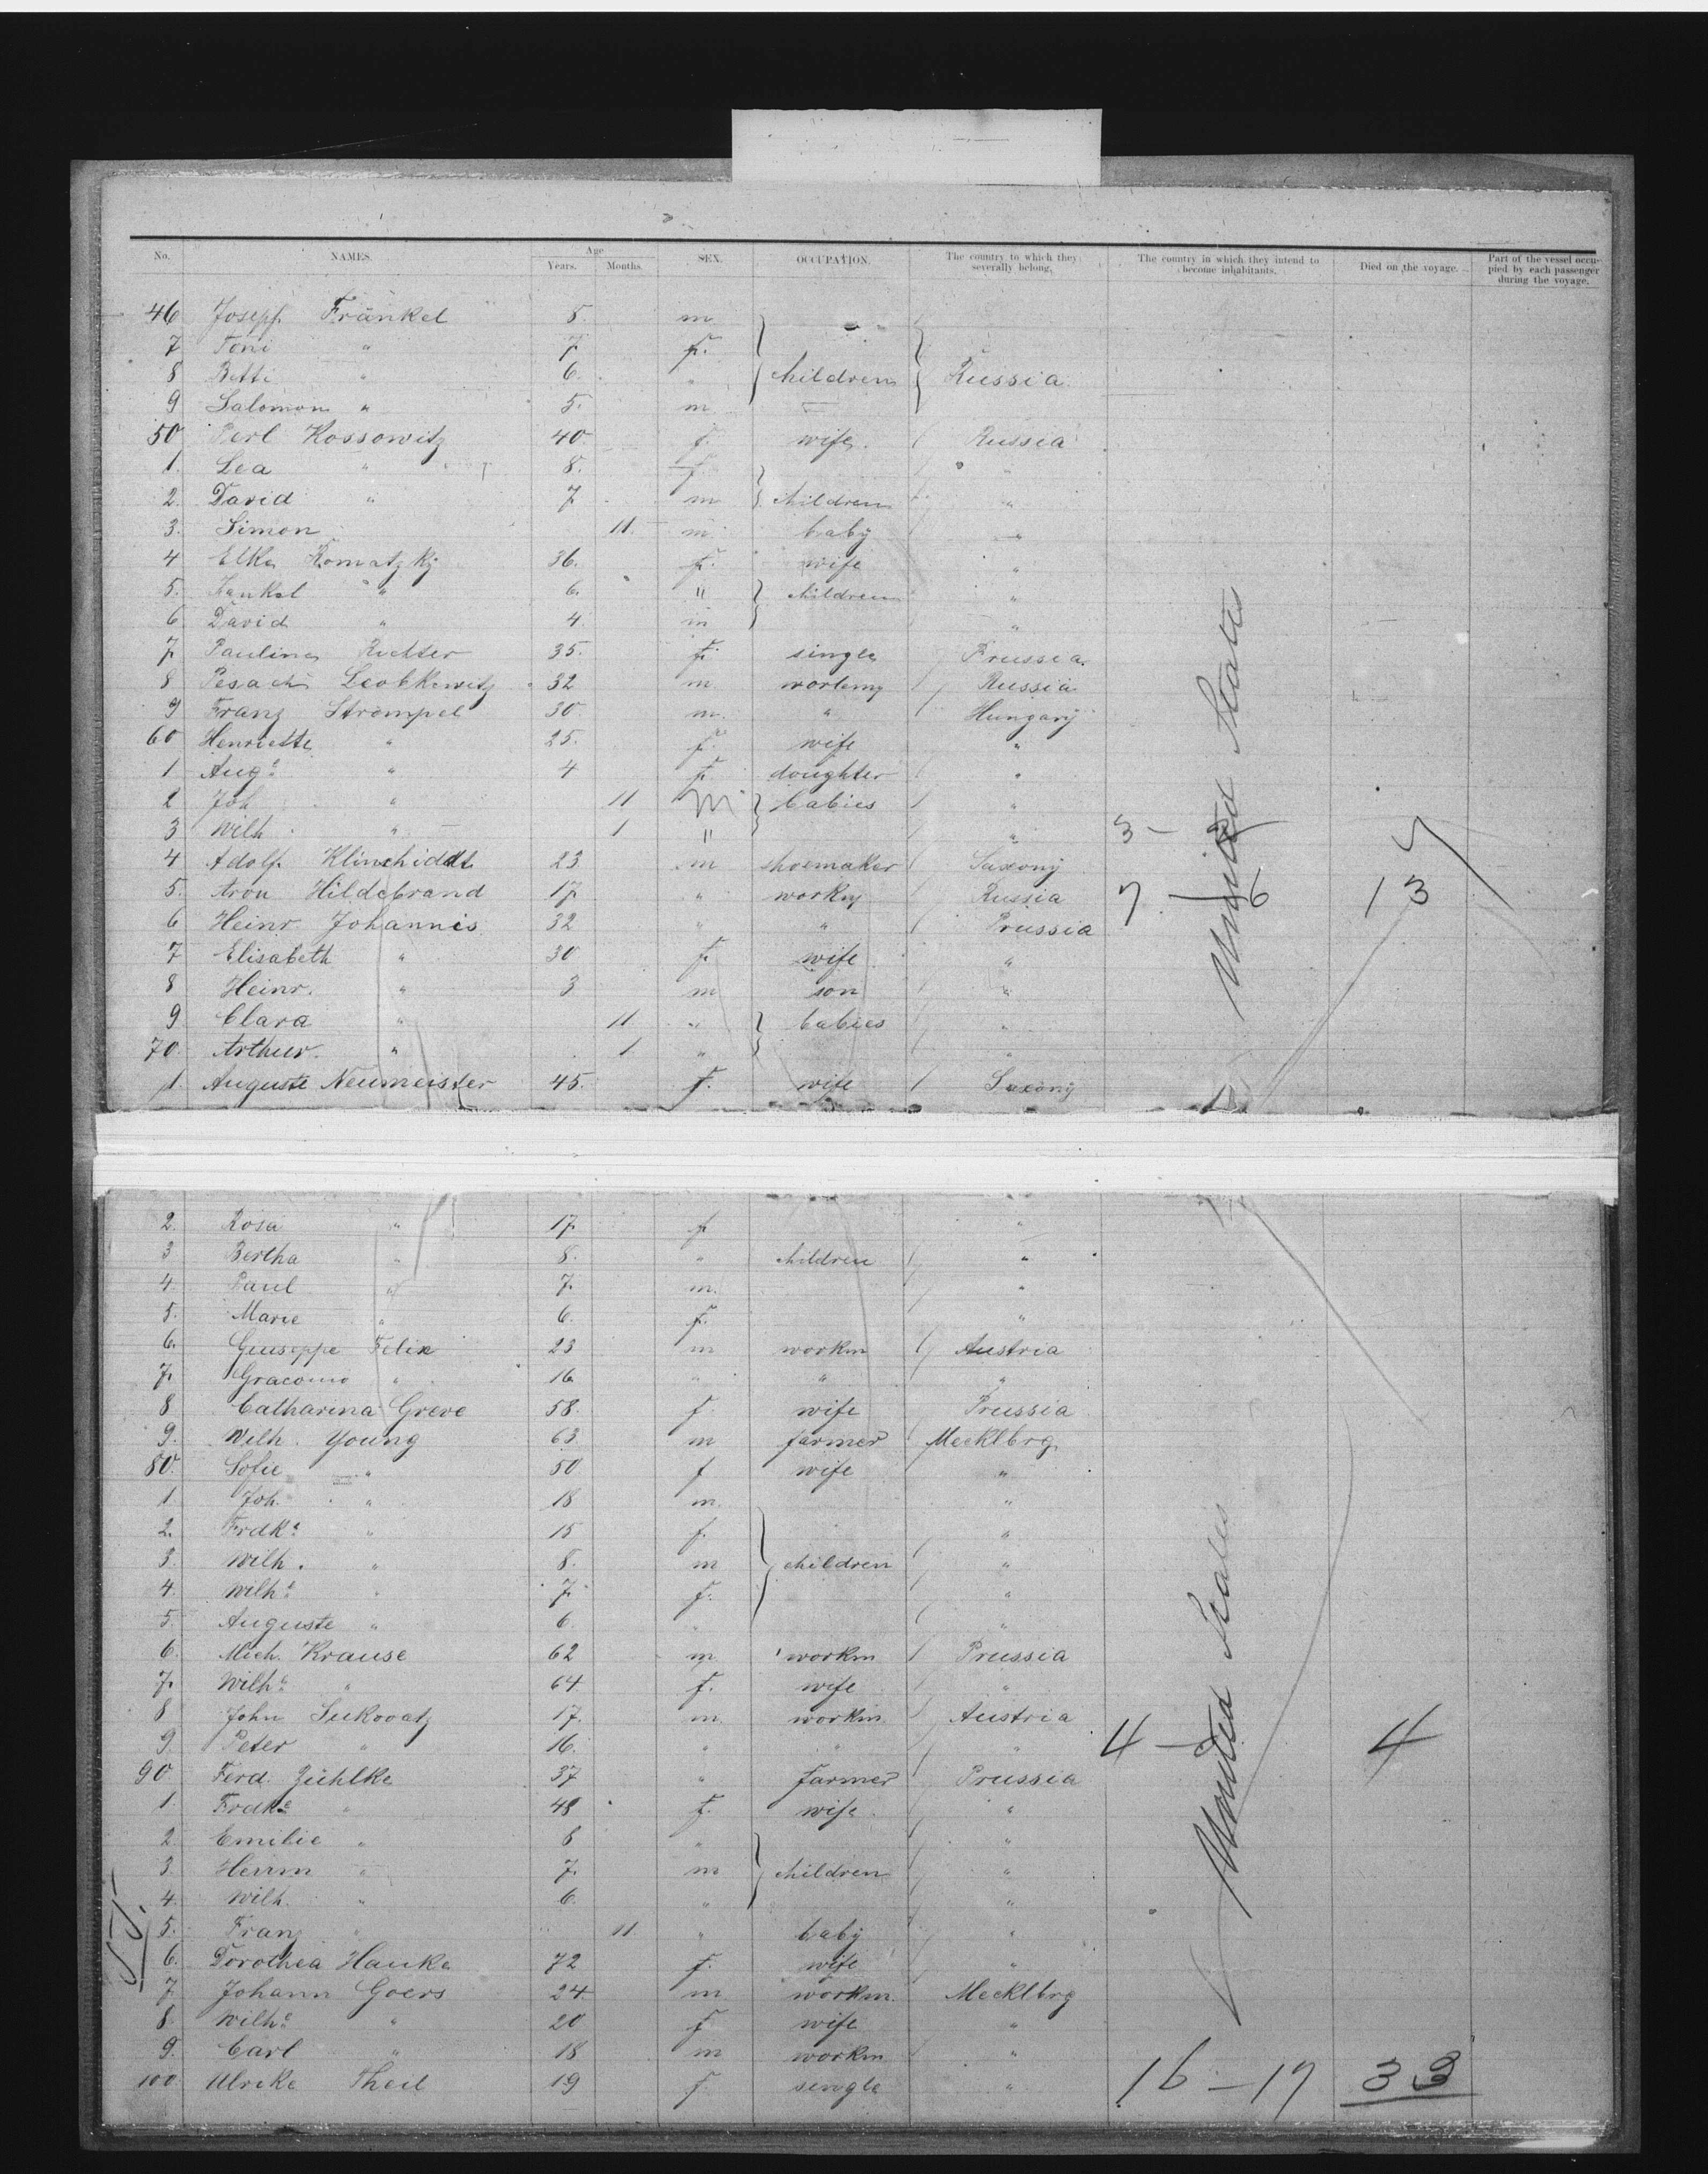 No. NAMES. Age Years. Months. SEX. OCCUPATION. The country to which they severally belong. The country in which they intend to become inhabitants. Died on the voyage. Part of the vessel occupied by each passenger during the voyage.
46 Josepf Fränkel 8. m
7 Toni " 7 f.
8 Betti " 6. " children Russia
9 Salomon " 5. m
50 Perl Kossowitz 40 f. wife Russia
1. Lea " 8. f. "
2. David " 7 m children "
3. Simon 11. m baby "
4 Elka Romatzky 36. f. wife "
5. " 6. " children "
6 David " 4. m "
7 Pauline Richter 35. f. single Prussia
8 Pesach 32 m Russia
9 Franz Strompel 30. m. " Hungary
60 Henriette " 25. f. wife "
1 Auge " 4 f. doughter "
2 Joh " 11 m babies "
3 Wilh. " 1 " "
4 Adolf 23 m shoemaker Saxony
5. Aron Hildebrand 17 " Russia
6 Heinr Johannis 32 " " Prussia
7 Elisabeth " 30 f. wife "
8 Heinr. " 3 m son "
9 Clara " 11 " babies "
70. Arthur. " 1 " "
1. Auguste Neumeister 45. f. wife Saxony
United States
3 –
7 – 6 13
2. Rosa " 17 f "
3 Bertha " 8. " children "
4. Paul " 7. m. "
5. Marie " 6. f. "
6. Giuseppe Felix 23 m workm Austria
7. Giacomo " 16 " " "
8 Catharina Greve 58. f wife Prussia
9. Wilh. Young 63. m farmer Mecklbrg.
80. Sofie " 50 f wife "
1. Joh. " 18 m. "
2. Frdke " 15 f. "
3. Wilh. " 8. m children "
4. Wilhe " 7. f. "
5. Auguste " 6. " "
6. Mich. Krause 62 m workm Prussia
7. Wilhe " 64. f. wife "
8 John Sukovatz 17. m. workm. Austria
9. Peter " 16. " " "
90 Ferd. Zühlke 37 " farmer Prussia
1. Frdke " 48 f. wife "
2. Emilie " 8 " "
3. Herm " 7. m children "
4. Wilh. " 6. " "
5. Franz " 11. " baby "
6. Dorothea Hanke 72 f. wife "
7 Johann Goers 24 m workm. Mecklbrg
8. Wilhe " 20 f wife "
9. Carl " 18 m workm "
100 Ulrike Theil 19 f single "
United States
4 – 4
16 – 17 33